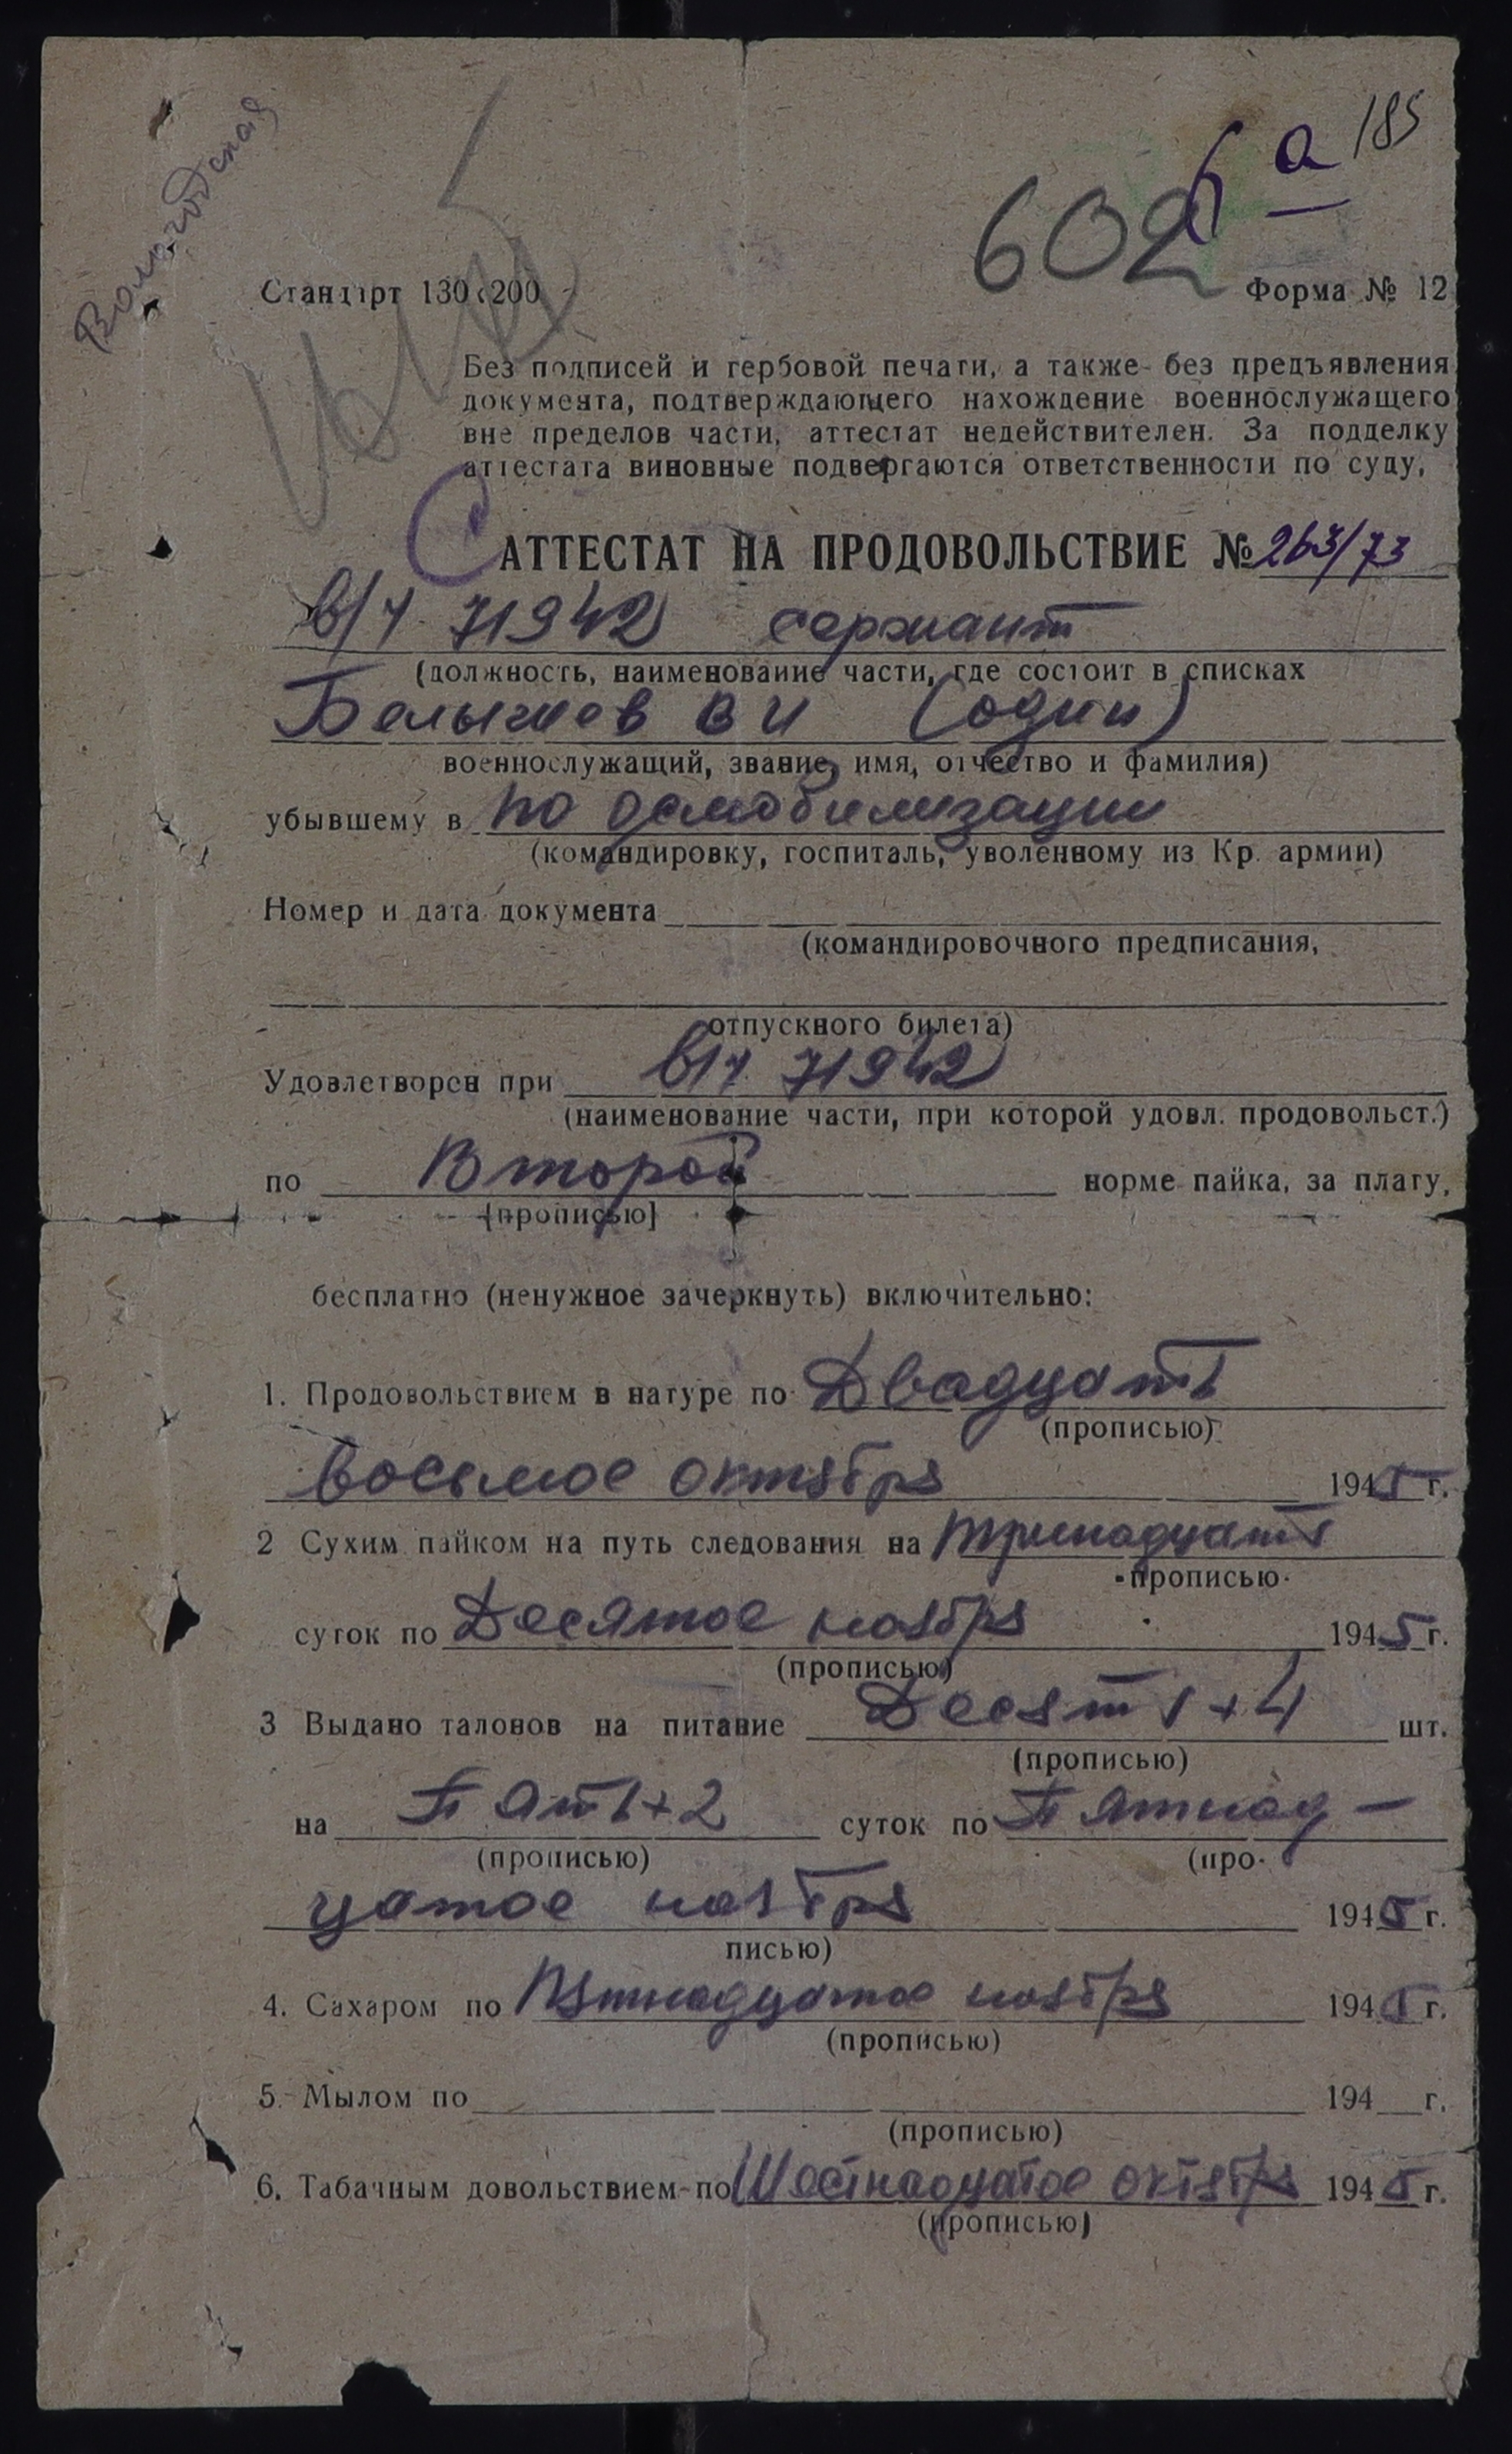 Вологодская
185
а
602
Стандарт 130×200
Форма № 12
Без подписей и гербовой печати, а также без предъявления
документа, подтверждающего нахождение военнослужащего
вне пределов части, аттестат недействителен. За подделку
аттестата виновные подвергаются ответственности по суду,
АТТЕСТАТ НА ПРОДОВОЛЬСТВИЕ № 263/73
в/ч 71942 сержант
(должность, наименование части, где состоит в списках
В И (один)
военнослужащий, звание, имя, отчество и фамилия)
убывшему в по демобилизации
(командировку, госпиталь, уволенному из Кр. армии)
Номер и дата документа
(командировочного предписания,
отпускного билета)
Удовлетворен при в/ч 71942
(наименование части, при которой удовл. продовольст.)
по Второй норме пайка, за плату,
[прописью]
бесплатно (ненужное зачеркнуть) включительно:
1. Продовольствием в натуре по Двадцать
(прописью)
восьмое октября 1945 г.
2 Сухим пайком на путь следования на тринадцать
прописью
суток по Десятое ноября 1945 г.
(прописью)
3 Выдано талонов на питание Десять + 4 шт.
(прописью)
на Пять + 2 суток по Пятнад-
(прописью) (про-
цатое ноября 1945 г.
писью)
4. Сахаром по Пятнадцатое ноября 1945 г.
(прописью)
5. Мылом по 194 г.
(прописью)
6. Табачным довольствием по Шестнадцатое октября 1945 г.
(прописью)